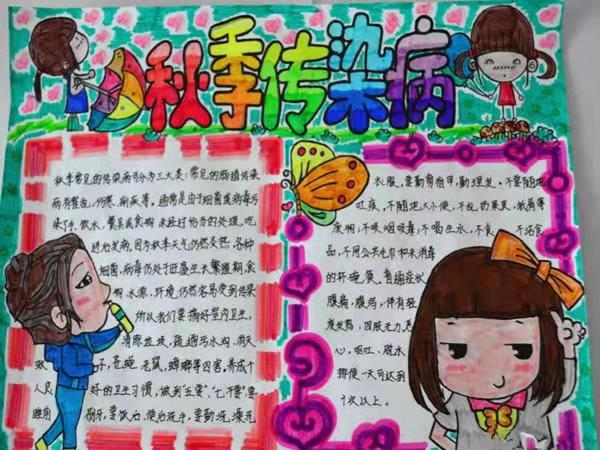 秋季传染病
秋季常见的传染病可分为三大类:常见的肠道传染
病有霍乱,伤寒,痢疾等,通常是由于细菌或病毒污
染了手,饮水,餐具或食物未经过恰当的处理,吃
进动发病,因为秋季天气仍然炎热,各种
细菌,病毒仍处于旺盛生长繁殖期,食
物水源,环境仍然容易受到污染
所以我们要搞好室内卫生,
清除垃圾,疏通污水沟,消灭
蚊子,苍蝇,老鼠,蟑螂等四害,养成个
人良好的卫生习惯,做到"五要","七不要"要
睡前刷牙,要饭后,便后洗手,要勤洗澡,洗
衣服,要勤剪指甲,勤理发,不要随地
吐痰,不随地大小便,不乱扔果皮,纸屑等
废物,不吸烟吸毒,不喝生水,不食不洁食
品,不用公共毛巾和未消毒
的杯碗,筷,普通症状
腹痛,腹泻,伴有轻
度发热,四肢无力,恶
心,呕吐,脱水
排便一天可达到
十次以上。